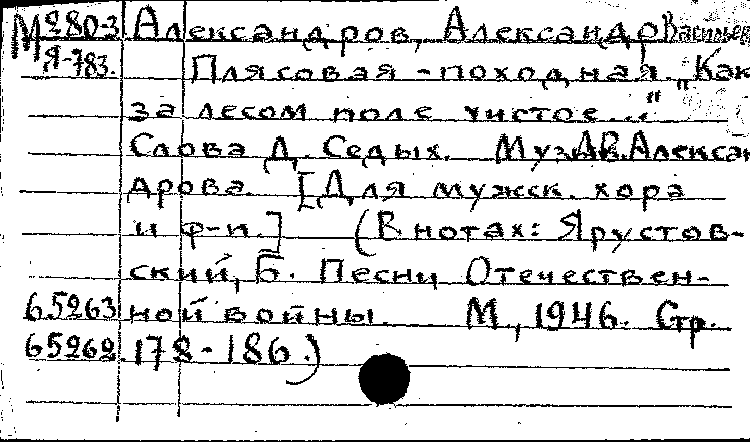 М280-3 Александров, Александр Васильев
Я-783. Плясовая-походная „Как
за лесом поле чистое..."
Слова Д. Седых. Музык. А.В. Алексан
дрова. [Для мужск. хора
и ф-п.] (В нотах: Ярустов-
ский, Б. Песни Отечествен-
65263 ной войны. М., 1946. Стр.
65262. 178-186.)